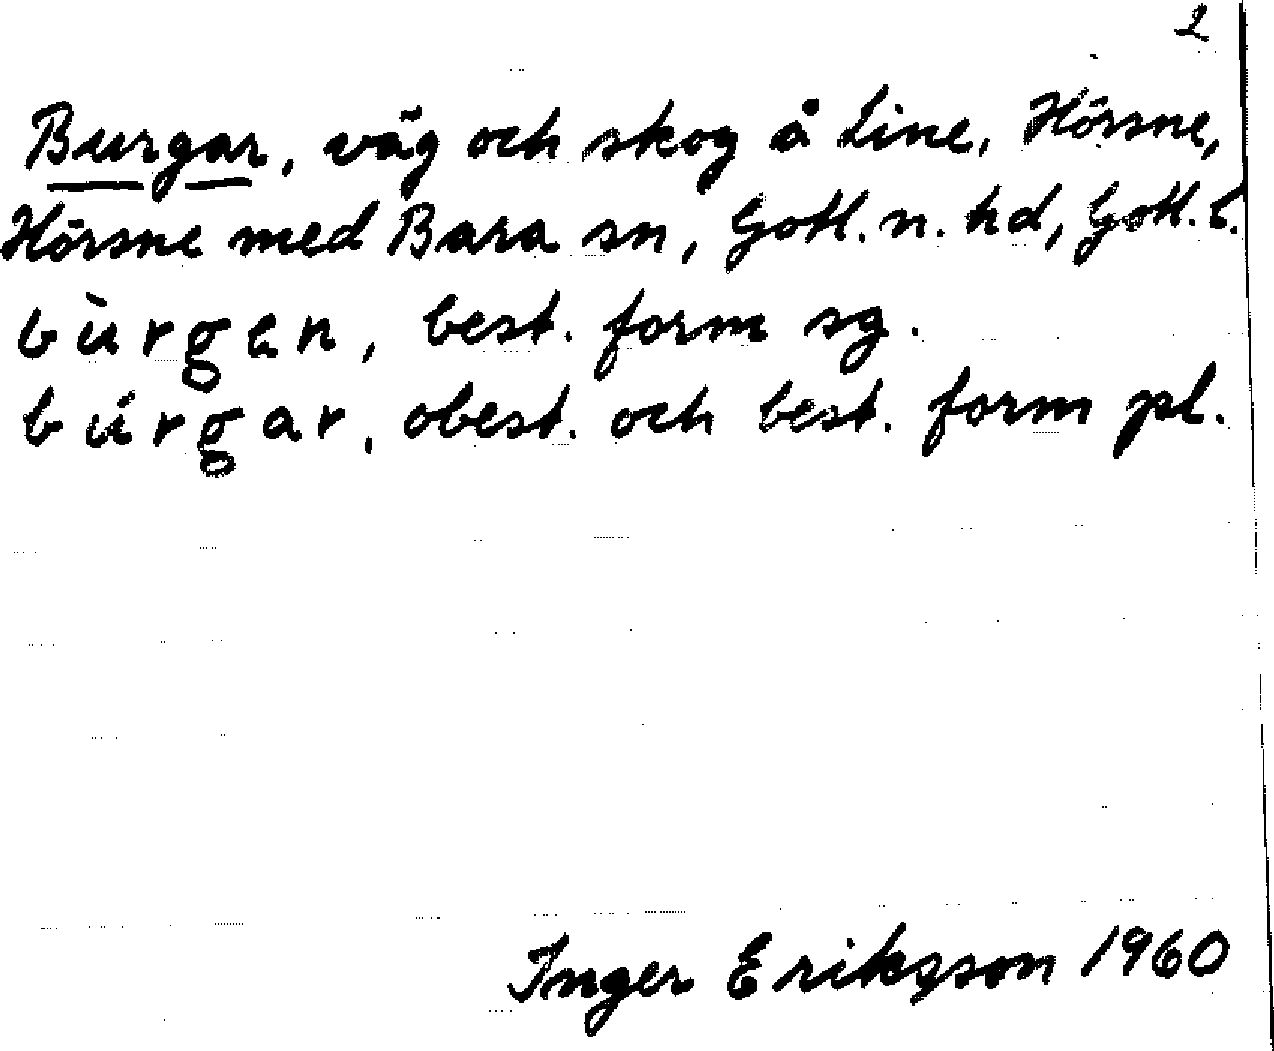 2
Burgar, väg och skog å Line, Hörsne,
Hörsne med Bara sn, Gotl. n. hd, Gotl. l.
bùrgen, best. form sg.
búrgar, obest. och best. form pl.
Inger Eriksson 1960